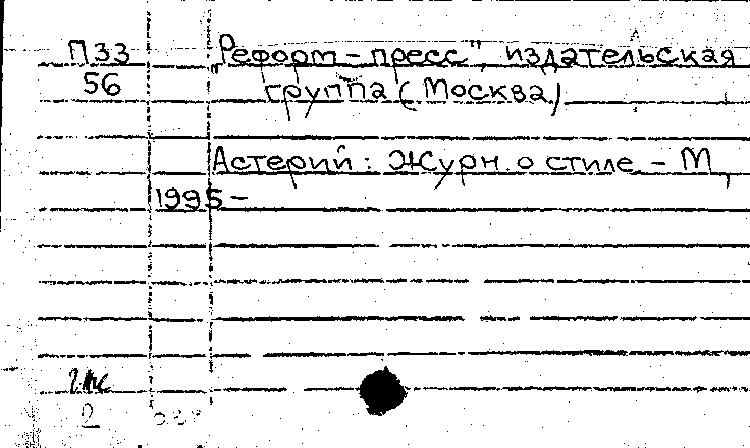 П33 "Реформ-пресс", издательская
56 группа (Москва)
Астерий: Журн. о стиле. - М,
1995-
2